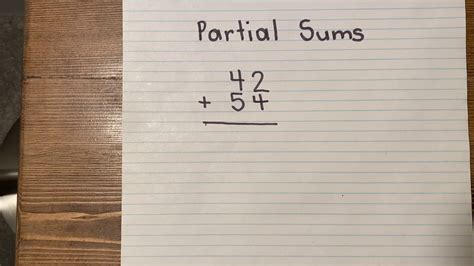 Partial Sums
42
+ 54